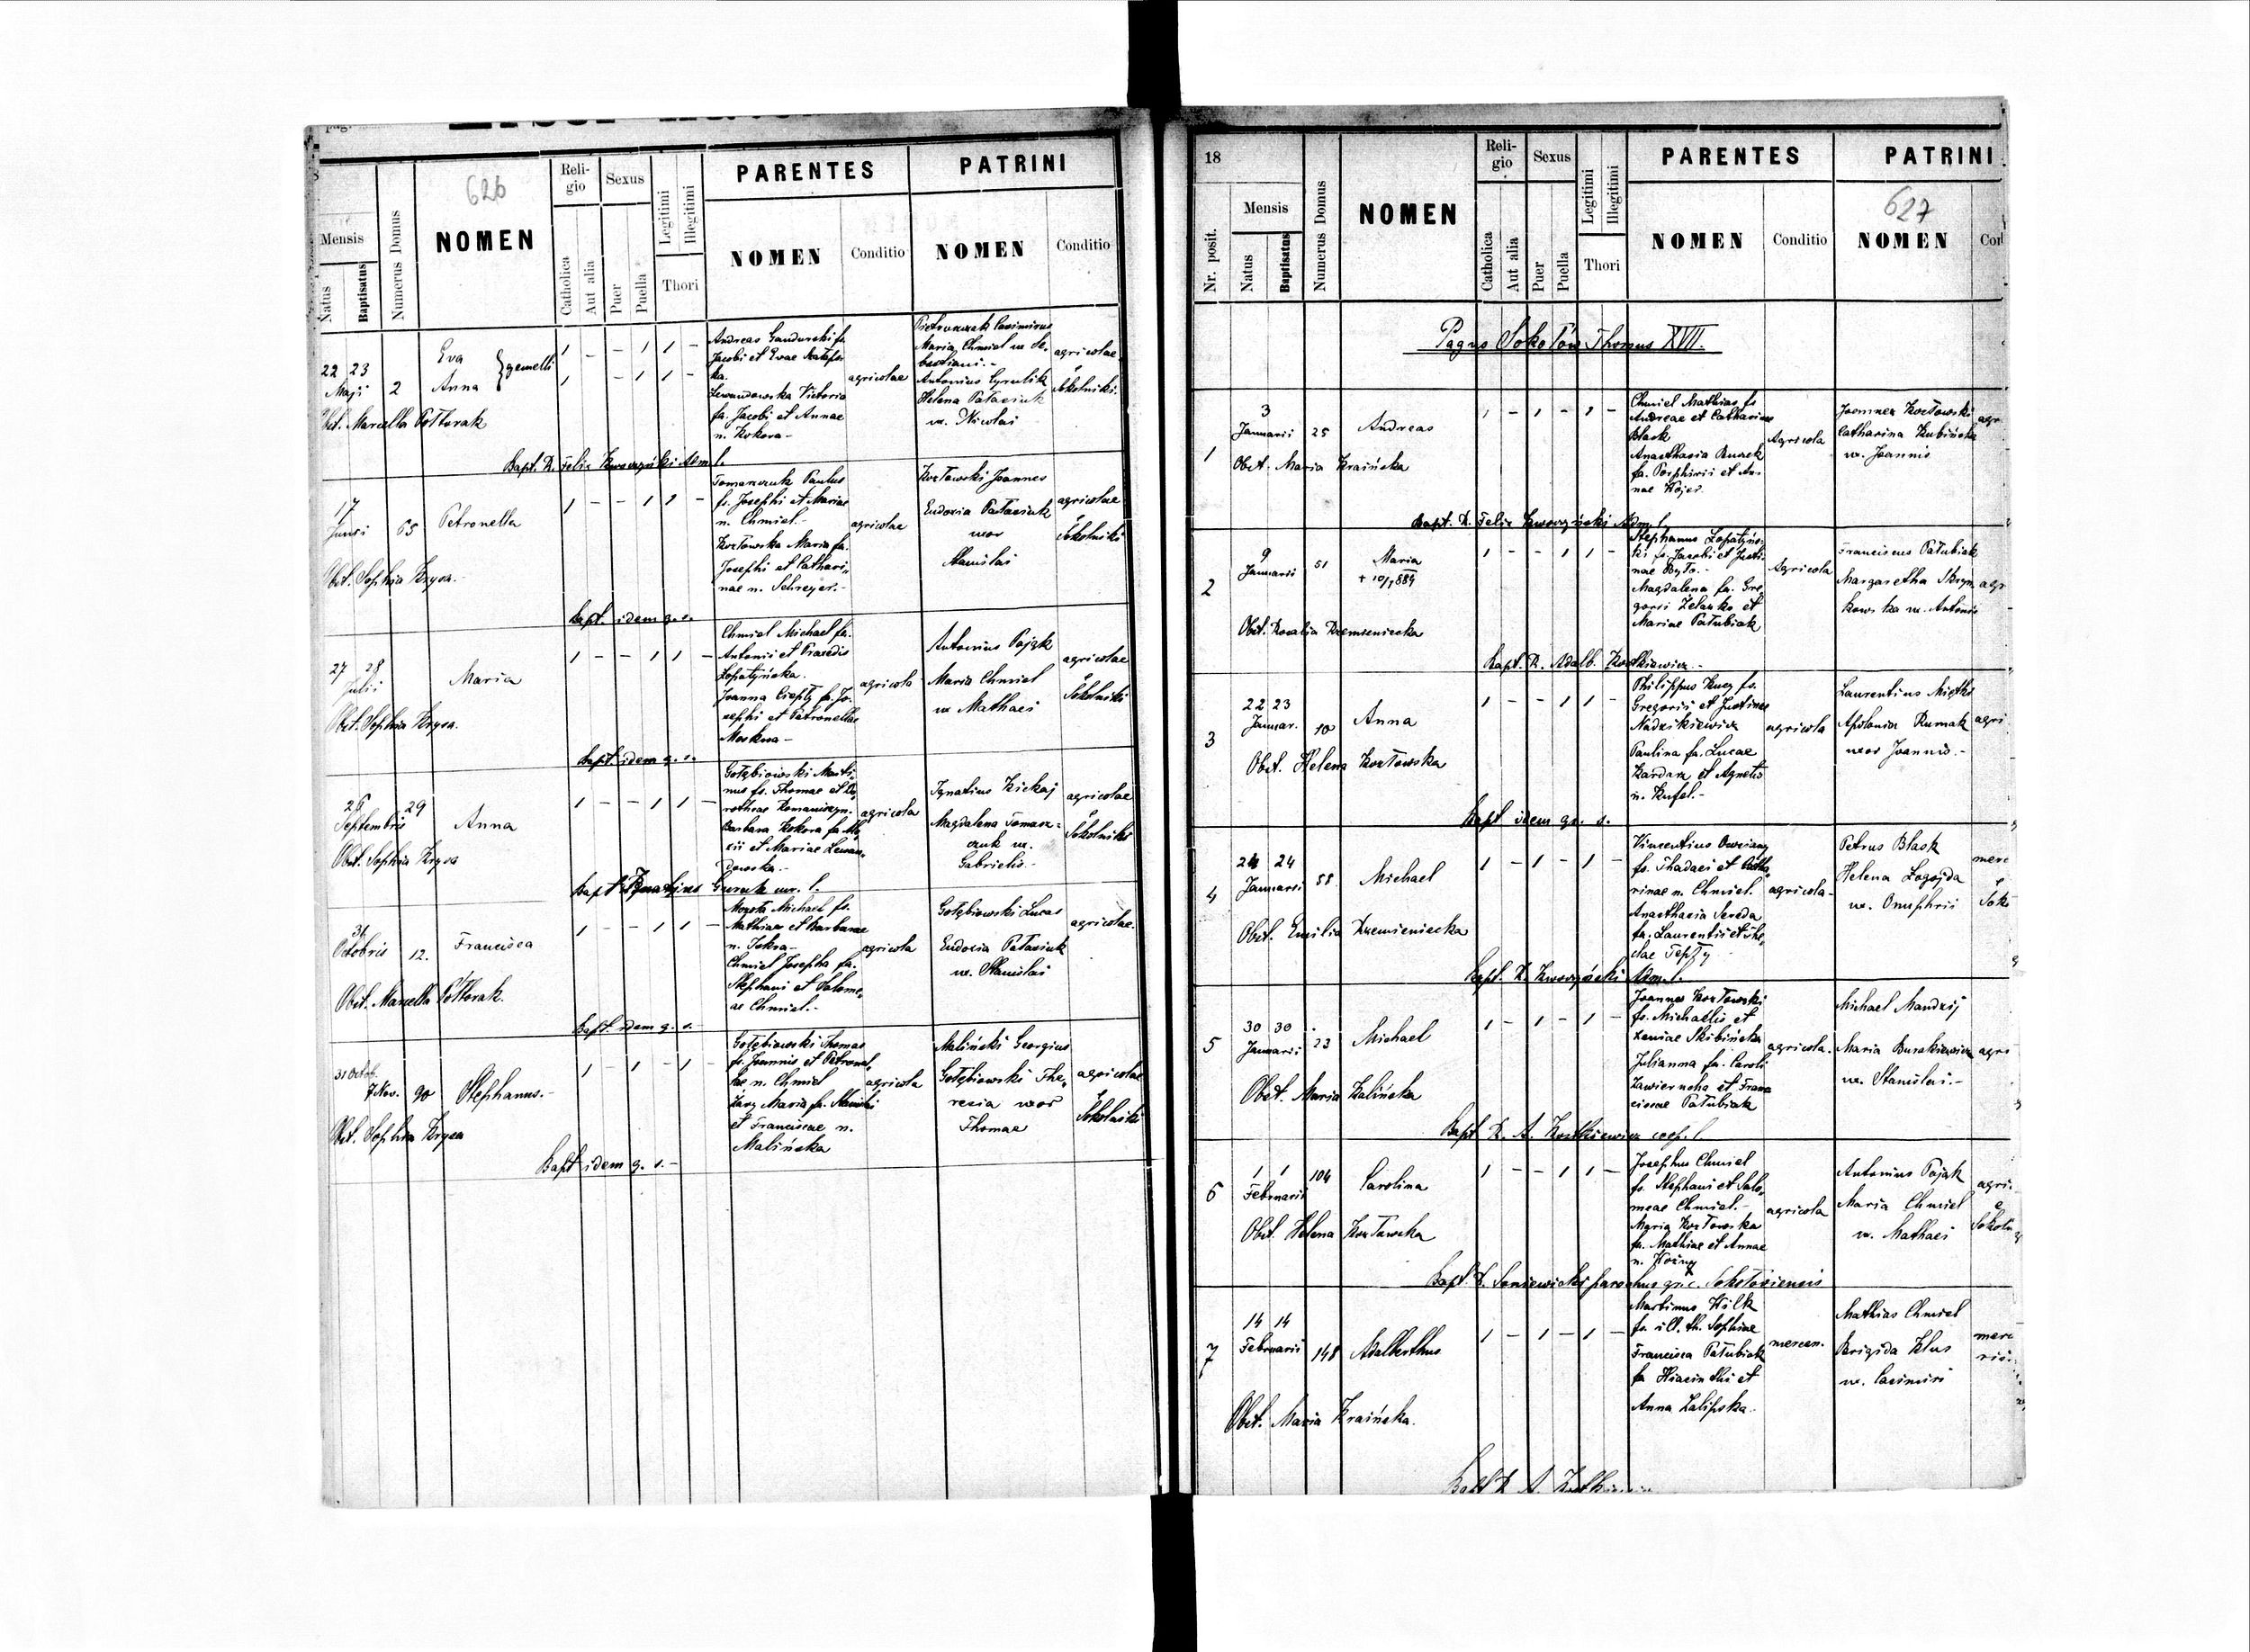 626
Religio
Sexus
Legitimi
Illegitimi
PARENTES
PATRINI
Mensis
Numerus Domus
NOMEN
NOMEN
Conditio
NOMEN
Conditio
Natus
Baptisatus
Catholica
Aut alia
Puer
Puella
Thori
22 23
Maji
2
Eva
Anna
gemelli
1 - - 1 1 -
1 - 1 1 -
Andreas Gandurski fs.
Jacobi et Evae
ka.
Lewandowska Victoria
fa. Jacobi et Annae
n. Kokora -
agricolae
Pietruszczak Casimirus
Maria Chmiel ux Se-
bastiani. -
Antonius Cyrulik
Helena Pataniuk
ux. Nicolai
agricolae
Sokolniki.
Obst. Marcella Półtorak
Bapt. R. Felix Kwoczyński Adm. l.
17
Junii
65
Petronella
1 - - 1 1 -
Tomaszczuk Paulus
fs. Josephi et Mariae
n. Chmiel. -
Kozłowska Maria fa.
Josephi et Cathari-
nae n. Schreyer. -
agricolae
Kozłowski Joannes
Eudoxia Pataniuk
uxor
Stanislai
agricolae
Sokolniki
Obst. Sophia Krysa. -
Bapt. idem g. s.
27 28
Julii
Maria
1 - - 1 1 -
Chmiel Michael fs.
Antonii et Praxedis
Łopatyńska.
Joanna Ciepły fa. Jo-
sephi et Petronellae
Moskwa -
agricola
Antonius Pająk
Maria Chmiel
ux Mathaei
agricolae
Sokolniki
Obst. Sophia Krysa.
Bapt. idem g. s.
28 29
Septembris
Anna
1 - - 1 1 -
Gołębiowski Marti-
nus fs. Thomae et Do-
rotheae Romaniszyn.
Barbara Kokora fa. Ale-
xii et Mariae Lewan-
dowska. -
agricola
Ignatius Kickaj
Magdalena Tomasz-
czuk ux.
Gabrielis -
agricolae
Sokolniki
Obst. Sophia Krysa
31
Octobris
12.
Francisca
1 - - 1 1 -
Michael fs.
Mathiae et Barbarae
n. Iskra -
Chmiel Josepha fa.
Stephani et Salome-
ae Chmiel. -
agricola
Gołębiowski Lucas
Eudoxia Pataniuk
ux. Stanislai
agricolae.
Obst. Marcella Półtorak.
Bapt. idem g. s. -
31 Octob.
7 Nov.
90
Stephanus. -
1 - 1 - 1 -
Gołębiowski Thomas
fs. Joannis et Petronel-
lae n. Chmiel
Maria fa. Stanislai
et Franciscae n.
Malińska
agricola
Maliński Georgius
Gołębiowski The-
resia uxor
Thomae
agricolae
Sokolniki
Obst. Sophia Krysa
Bapt idem g. s. -
18
Religio
Sexus
Legitimi
Illegitimi
PARENTES
PATRINI
627
Nr. posit.
Mensis
Numerus Domus
NOMEN
NOMEN
Conditio
NOMEN
Natus
Baptisatus
Catholica
Aut alia
Puer
Puella
Thori
Pagus Sokołów Thomus XVII.
1
3
Januarii
25
Andreas
1 - 1 - 1 -
Chmiel Mathias fs
Andreae et Catharinae
Blask
Anasthasia Burek
fa. Porphirii et An-
nae
Agricola
Joannes Kozłowski
Catharina Kubińska
ux. Joannis
agr
Obst. Maria Kraińska
Bapt. R. Felix Kwoczyński Adm. l
2
9
Januarii
51
Maria
+ 10/1 889
1 - - 1 1 -
Stephanus Łopatyńs-
ki fs. Jacobi et Justi-
nae Była. -
Magdalena fa. Gre-
gorii Żelazko et
Mariae Patubiak
Agricola
Franciscus Patubiak
Margaretha Skrzyn-
kowska ux. Antonii
agr
Obst. Rosalia Krzemieniecka
Bapt. R. Adalb. Kostkiewicz. -
3
22 23
Januar.
10
Anna
1 - - 1 1 -
Philippus fs.
Gregorii et Justinae
Nadzikiewicz
Paulina fa. Lucae
Kardasz et Agnetis
n. Kufel. -
agricola
Laurentius
Apolonia Rumak
uxor Joannis. -
agri
Obst. Helena Kozłowska
Bapt idem gr. s.
4
24 24
Januarii
58
Michael
1 - 1 - 1 -
Vincentius
fs. Thadaei et Catha-
rinae n. Chmiel.
Anasthasia Sereda
fa. Laurentii et The-
clae Tepły
agricola -
Petrus Blask
Helena Łogojda
ux. Onuphrii
merc
Soko
Obst. Emilia Krzemieniecka
Bapt. R. Kwoczyński Adm. l.
5
30 30
Januarii
23
Michael
1 - 1 - 1 -
Joannes Kozłowski
fs. Michaelis et
Xeniae Skibińska
Julianna fa. Caroli
Zawierucha et Fran-
ciscae Patubiak
agricola.
Michael Mandzij
Maria Burakiewicz
ux. Stanislai. -
agri
Obst. Maria Kalińska
Bapt R. A. Kostkiewicz coop. l.
6
1 1
Februarii
104
Carolina
1 - - 1 1 -
Josephus Chmiel
fs. Stephani et Salo-
meae Chmiel. -
Maria Kozłowska
fa. Mathiae et Annae
n.
agricola
Antonius Pająk
Maria Chmiel
ux. Mathaei
agri.
Sokoln
Obst. Helena Kozłowska
Bapt. R. Soniewicki parochus gr. c. Sokołoviensis
7
14 14
Februarii
148
Adalberthus
1 - 1 - 1 -
Martinus Wilk
fs. ill. th. Sophiae
Francisca Patubiak
fa Hiacinthi et
Anna Zalipska -
mercen.
Mathias Chmiel
Brigida Klus
ux. Casimiri
merc
Obst. Maria Kraińska.
Bapt R. A.